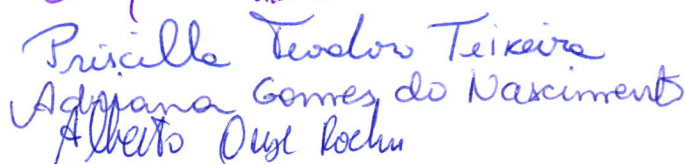 Priscilla Teodoro Teixeira
Adriana Gomes do Nascimento
Alberto Rocha